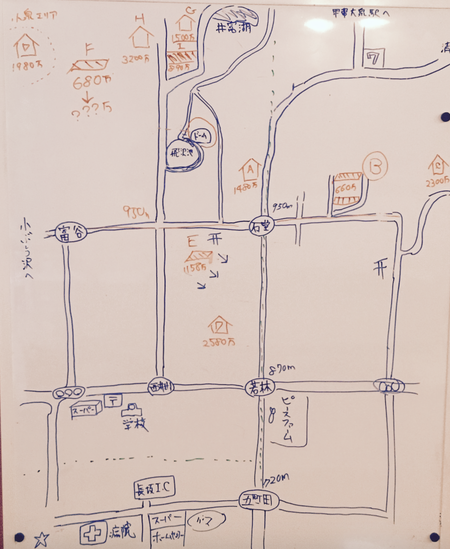 小泉エリア
D
1980万
F
680万
???万
H
3200万
G
1500万
I
井富湖
甲斐大泉駅へ
ドーム
A
1480万
B
660万
C
2300万
950m
950m
富谷
石堂
E
1158万
D
2580万
870m
若林
スーパー
〒
学校
ピースファーム
8
720m
五町田
長坂I.C
病院
スーパー
ホームセンター
バス